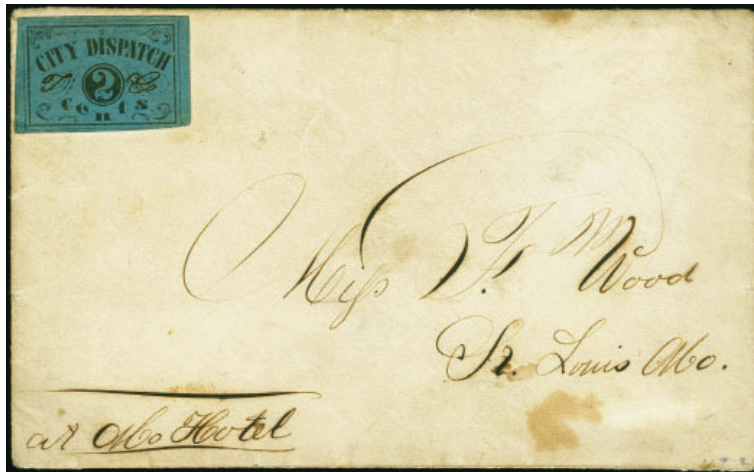 CITY DISPATCH
2
cents
Miss F. M Wood
St. Louis Mo.
at Mo Hotel